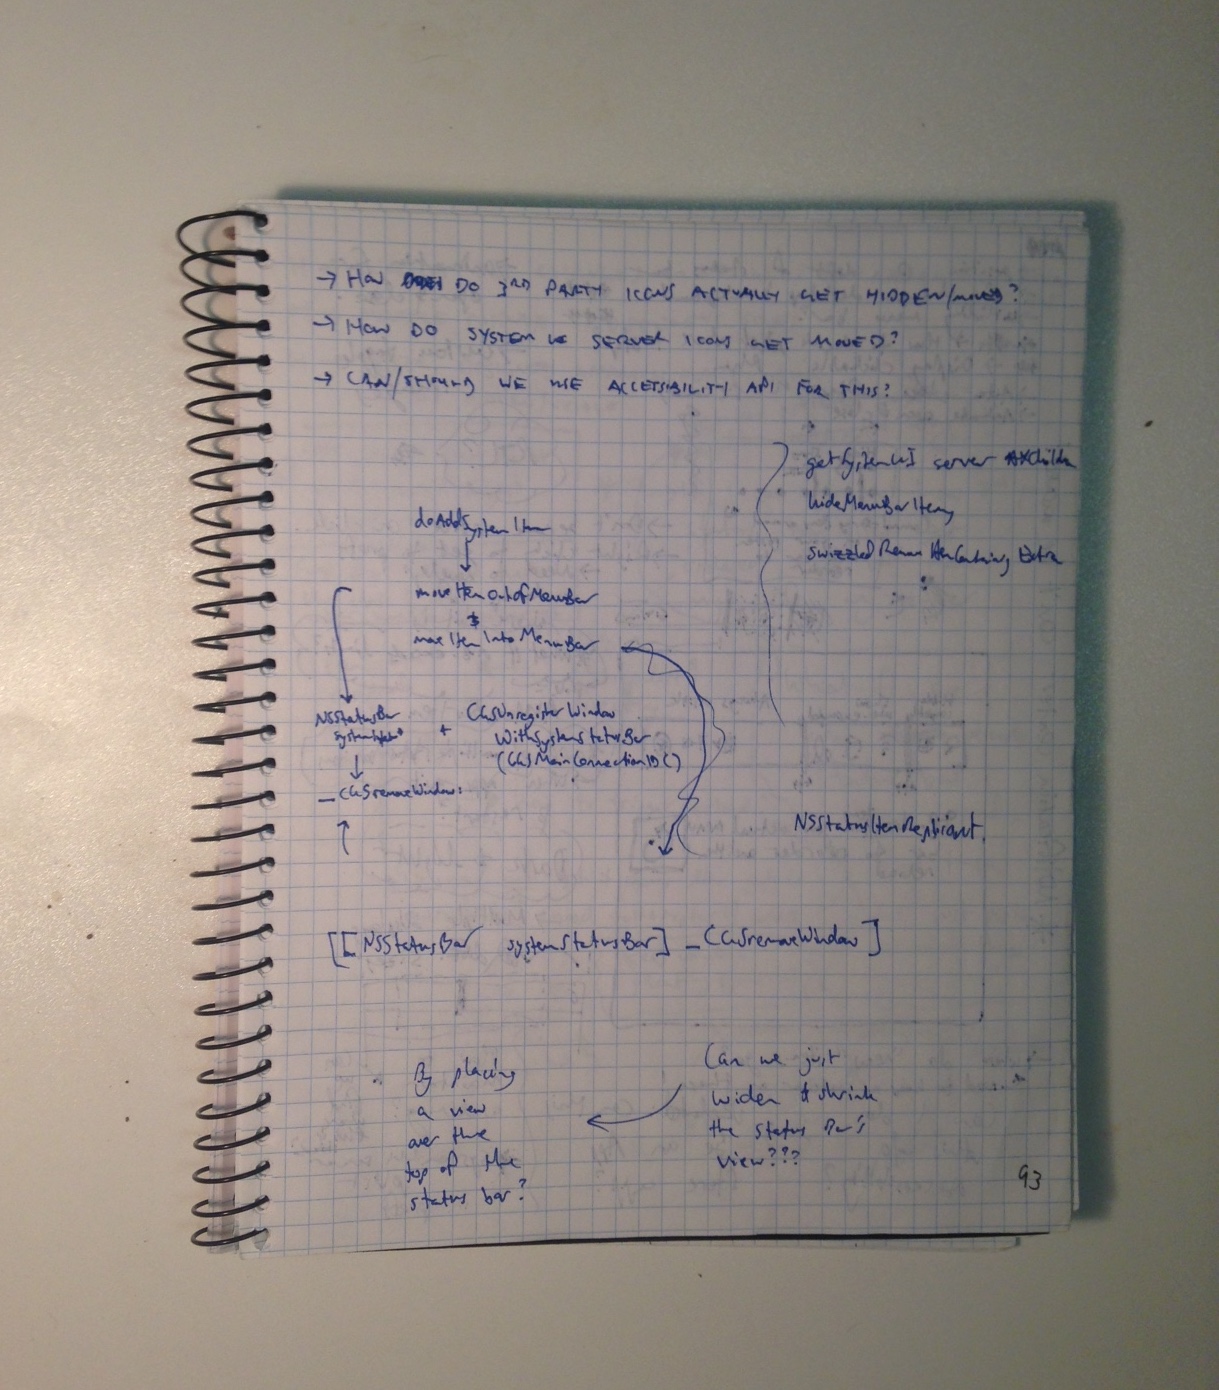 → HOW DO 3RD PARTY ICONS ACTUALLY GET HIDDEN/MOVED?
→ HOW DO SYSTEM UI SERVER ICONS GET MOVED?
→ CAN/SHOULD WE USE ACCESSIBILITY API FOR THIS?
getSystemUI server AXChildren
hideMenuBarItems
swizzledRemoveItemContaining Extra
doAddSystemItem
moveItemOutOfMenuBar
&
moveItemIntoMenuBar
NSStatusBar
+ CGSUnregisterWindow
WithSystemStatusBar
(CGSMainConnectionID()
_CGSremoveWindow:
NSStatusItemReplicant
[[NSStatusBar systemStatusBar] _CGSremoveWindow]
Can we just
widen & shrink
the status bar's
view???
By placing
a view
over the
top of the
status bar?
93